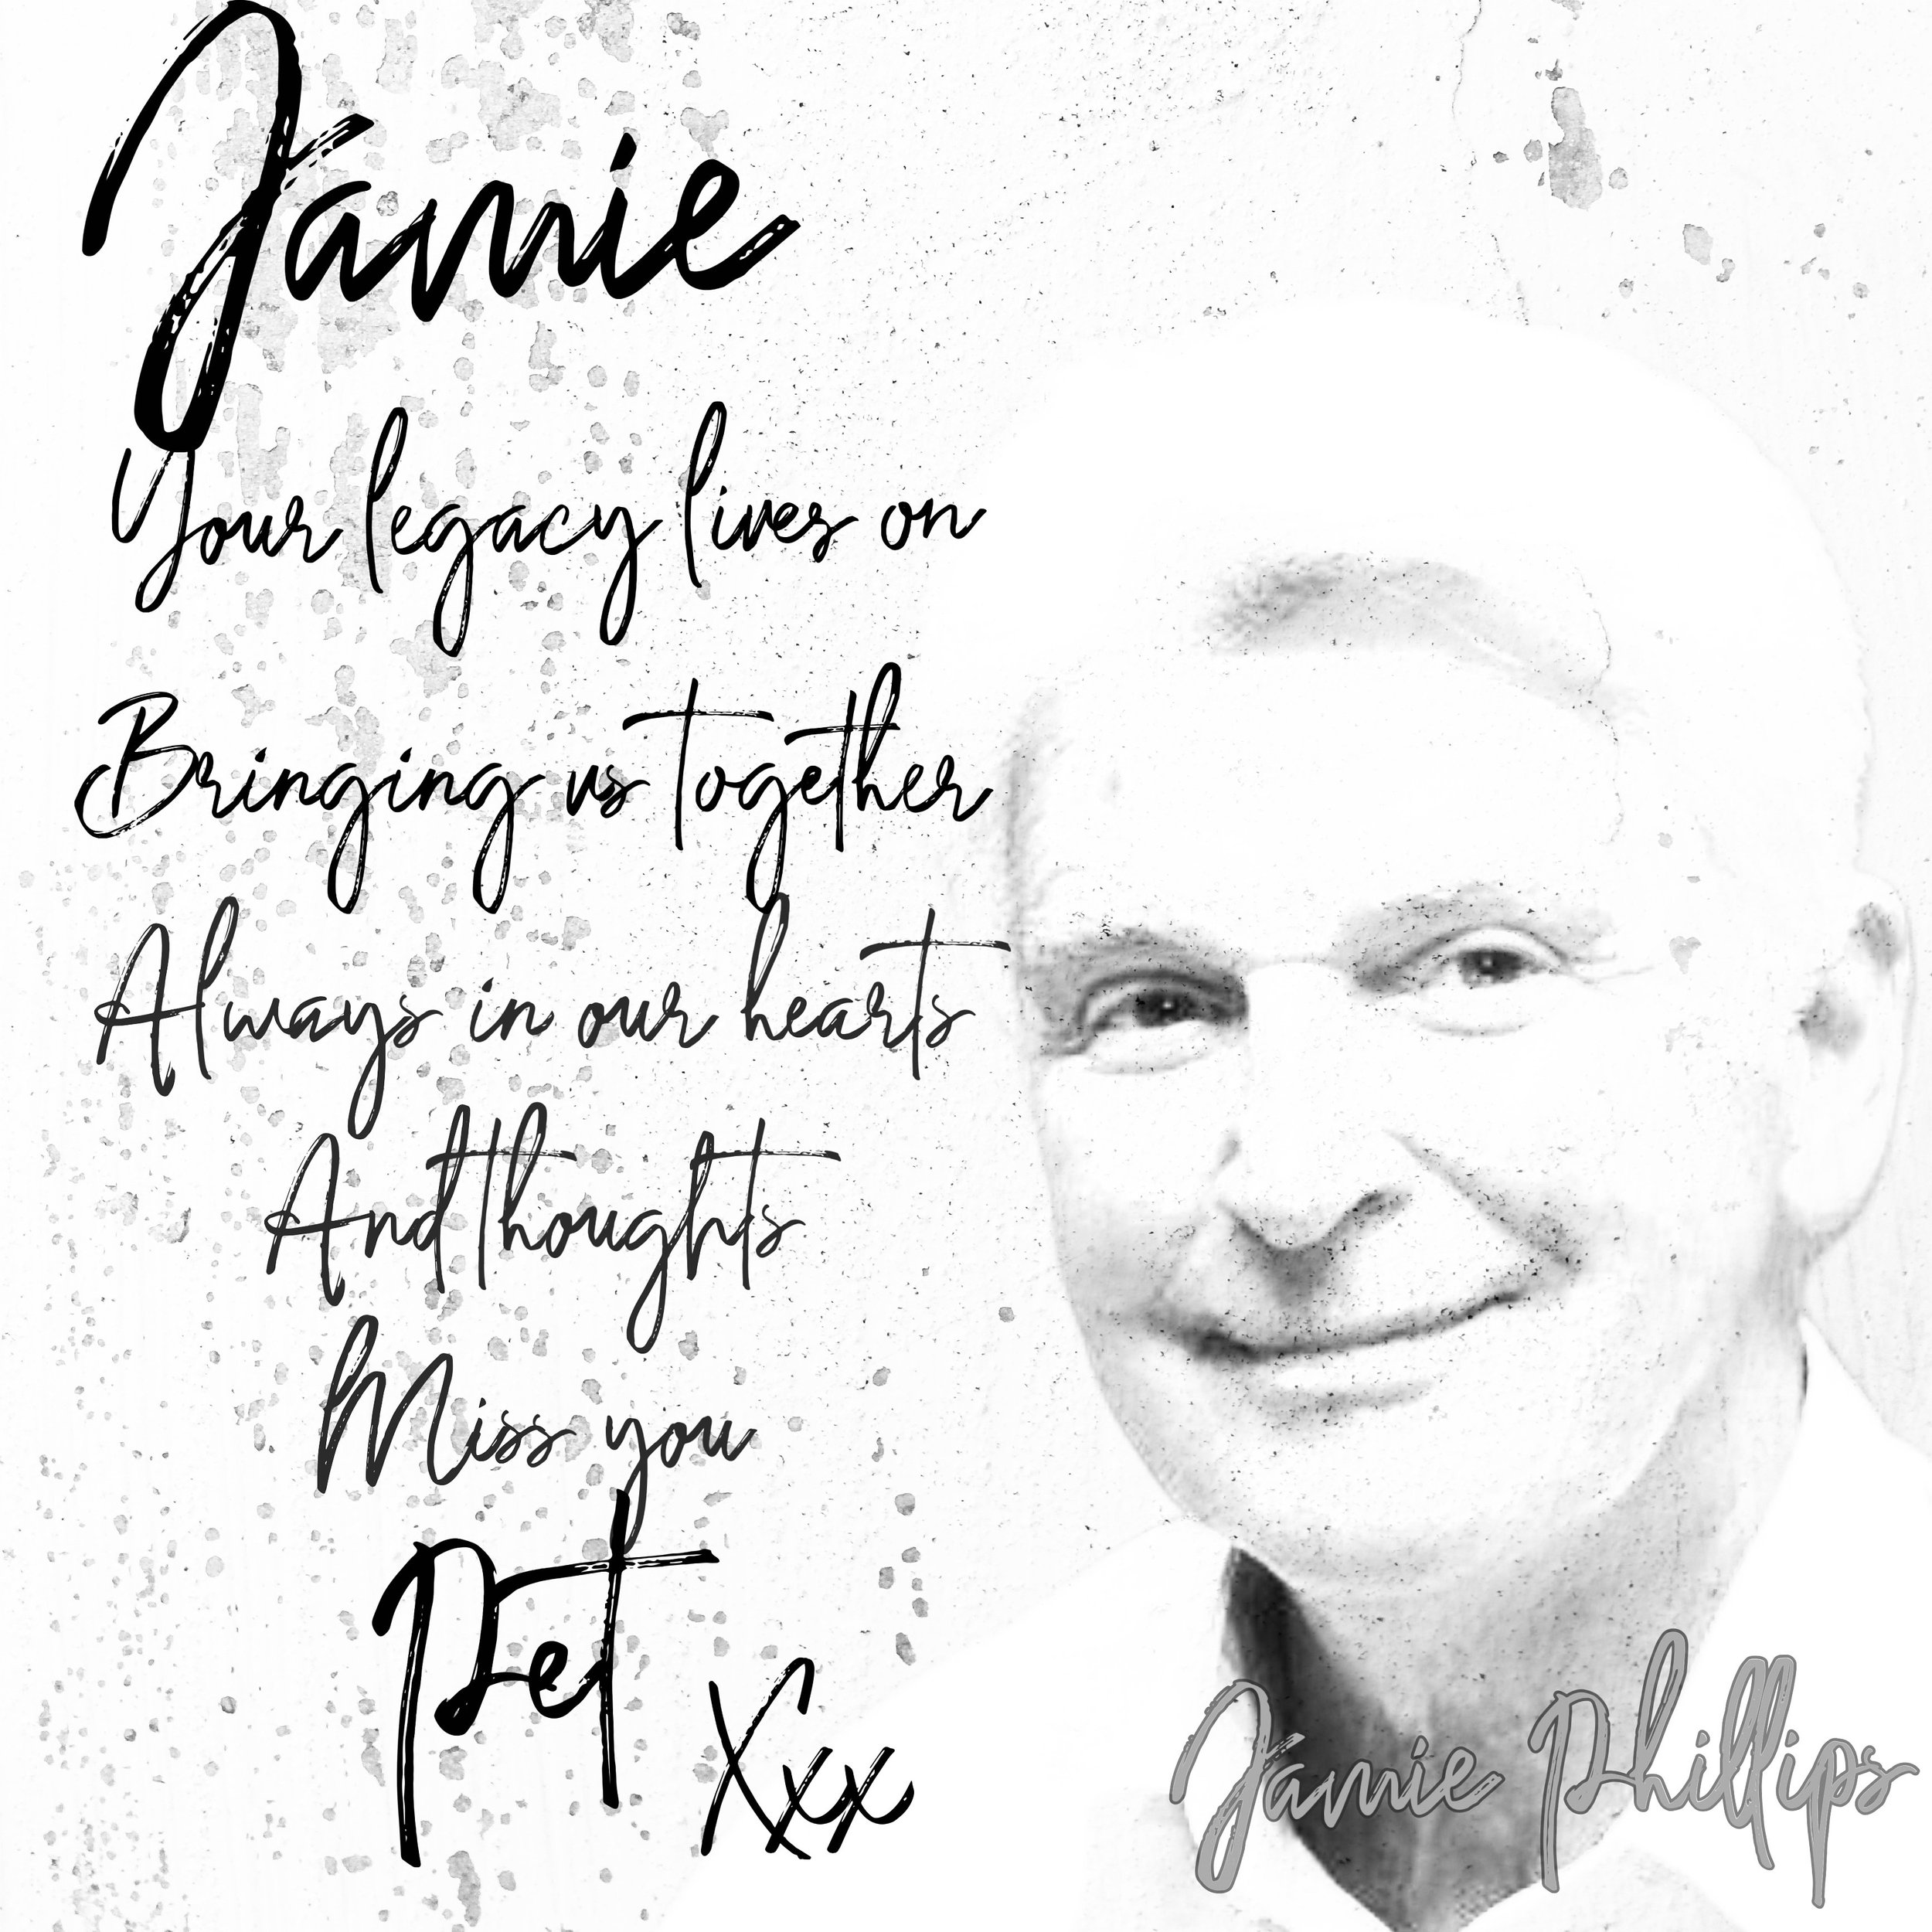 Jamie
Your legacy lives on
Bringing us together
Always in our hearts
And thoughts
Miss you
Pet
Xxx
Jamie Phillips